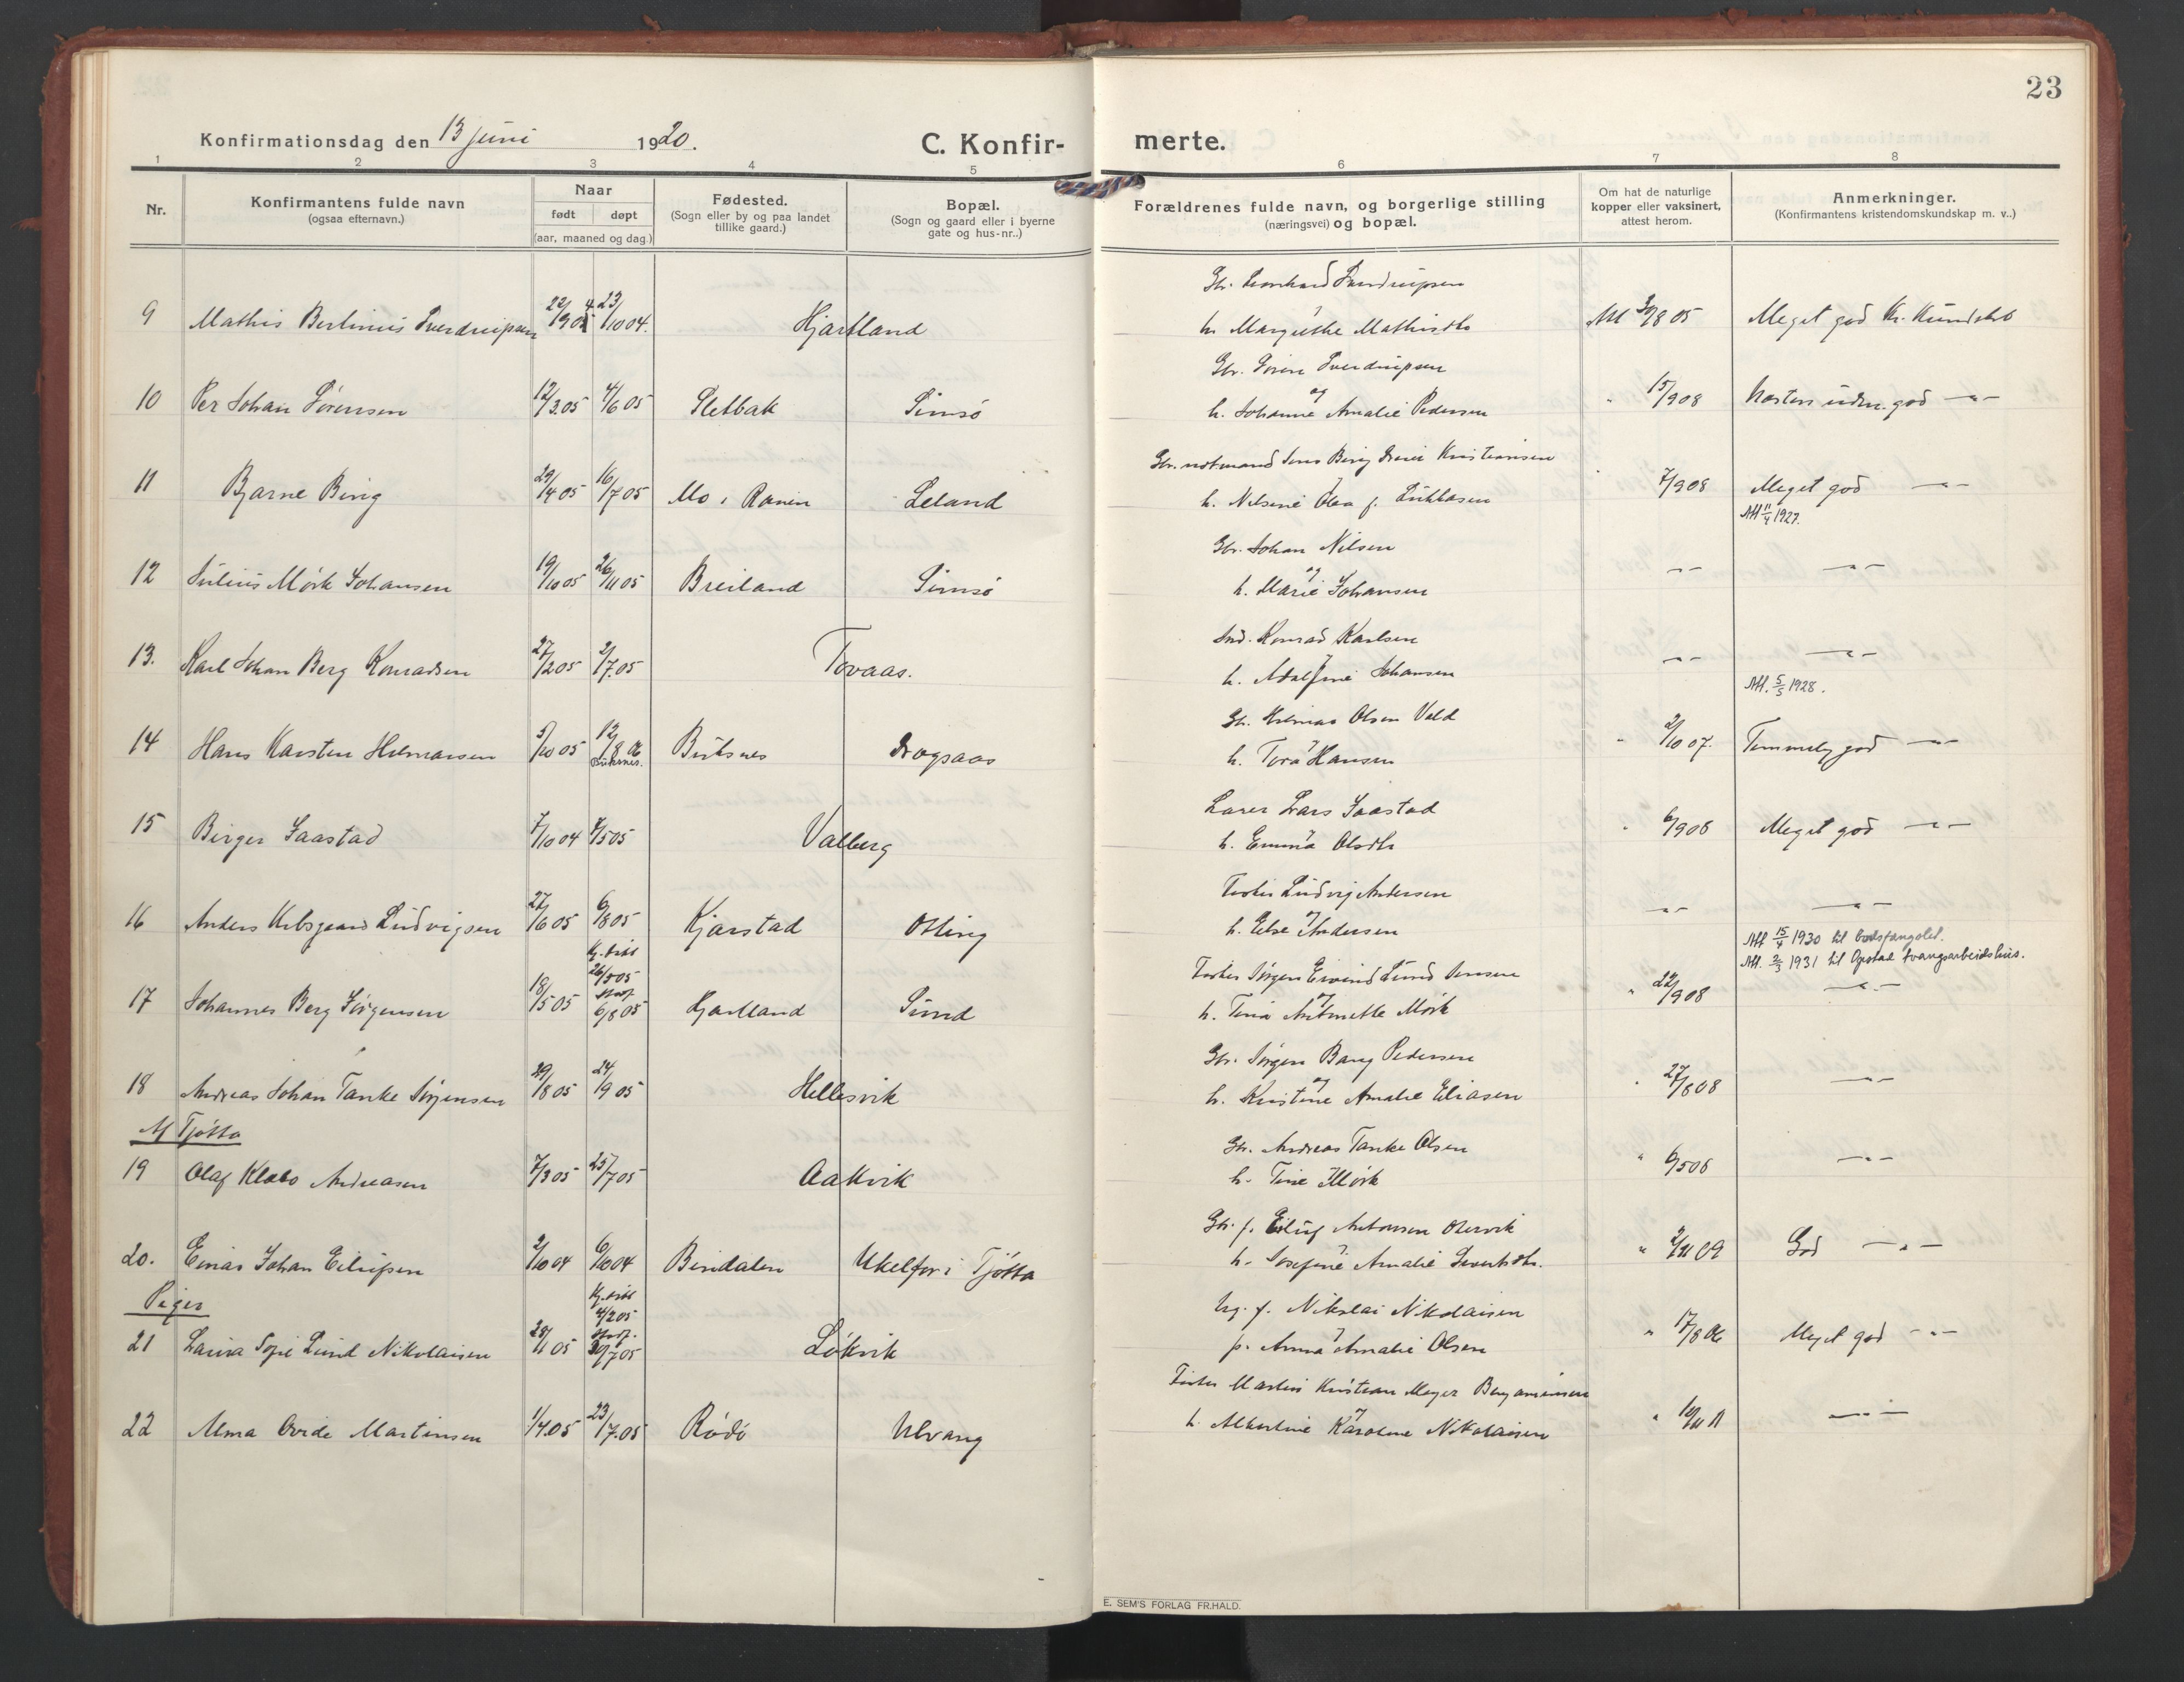 23
Konfirmationsdag den 13 juni 1920.
C. Konfir-
merte.
1 2 3 4 5 6 7 8
Nr.
Konfirmantens fulde navn
(ogsaa efternavn.)
Naar
født døpt
(aar, maaned og dag.)
Fødested.
(Sogn eller by og paa landet
tillike gaard.)
Bopæl.
(Sogn og gaard eller i byerne
gate og hus-nr..)
Forældrenes fulde navn, og borgerlige stilling
(næringsvei) og bopæl.
Om hat de naturlige
kopper eller vaksinert,
attest herom.
Anmerkninger.
(Konfirmantens kristendomskundskap m. v..)
9 Mathis Berlinus Sverdrupsen 23/10 04. Hjartland
h. Margrethe Mathisdtr 05 Meget god Kr. Kundskab
Gbr. Sverdrupsen
10 Per Johan Sørensen 12/3.05 4/6 05 Sletbak Simsø
og
h. Johanne Amalie Pedersen 15/9 08 Næsten udm. god —"—
11 Bjarne Bing 29/4 05 16/7 05 Mo i Ranen Leland
Kristiansen
h. Nilsine Olea f. Lukkasen 7/9 08 Meget god —"—
Att 11/4 1927.
Gbr. Johan Nilsen
12 Julius Mørk Johansen 19/10 05 26/11 05 Breiland Simsø
og
h. Marie Johansen —"— —"—
Ind. Konrad Karlsen
13. Karl Johan Berg Konradsen 27/2 05 2/7.05 Tovaas.
h. Johansen —"— —"—
Att. 5/5 1928.
Gbr. Hilmar Olsen Vold
14 Hans Karsten Hilmarsen 5/10 05 12/8 06 Buksnes Dragsaas
Buksnes.
h. Tora Hansen 2/10 07. Temmelig god —"—
Lærer Lars Saastad
15 Birger Saastad 7/10 04 7/5 05 Valberg
h. Emma Olsdtr 6/9 08 Meget god —"—
Fisker Ludvig Andersen
16 Anders Ludvigsen 27/6 05 6/8 05 Kjærstad Otting
h. Else Andersen —"— —"—
Att 15/4 1930 til bodsfængslet.
Att. 2/3 1931 til Opstad tvangsarbeidshus.
Fisker Jørgen Eivind Lund Jensen
17 Johannes Berg Jørgensen 18/5 05 26/5 05 6/8 05 Hjartland Sund
og
h. Tina Antonette Mørk 22/9 08 —"—
Gbr. Jørgen Bang Pedersen
18 Andreas Johan Tanke Jørgensen 29/8 05 24/9 05 Hellesvik
og
h. Kristine Amalie Eliasen 27/8 08 —"—
Af Tjøtta
Gbr. Andreas Tanke Olsen
19 Olaf Klæbo Andreasen 7/3 05 23/7 05 Aakvik
h. Tine Mørk 6/5 08 —"—
20. Einar Johan Eilifsen 2/10 04 6/10 04 Bindalen Ukelfor i Tjøtta
h. Josefine Amalie Sivertsdtr. 2/11 09 God —"—
Piger
f. Nikolai Nikolaisen
21 Laura Sofie Lund Nikolaisen 4/2 05 30/7 05 Løkvik
p. Anna Amalie Olsen 17/8 06 Meget god —"—
Fisker Martin Kristian Meyer Benjaminsen
22 Alma Ovide Martinsen 1/4.05 23/7.05 Rødø Ulvang
h. Albertine Karoline Nikolaisen 10/11 11 —"—
E. SEM'S FORLAG FR.HALD.